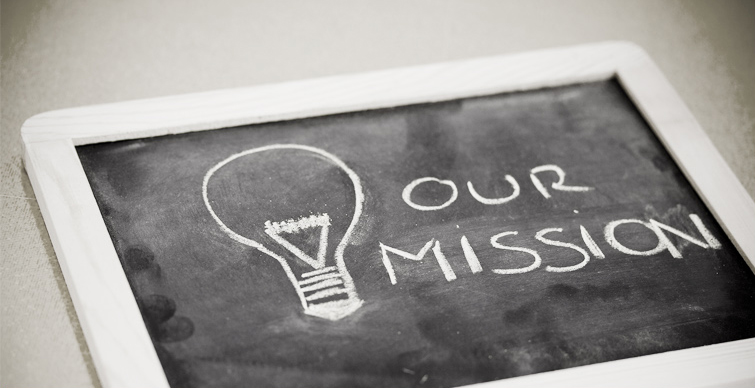 OUR
MiSSiON